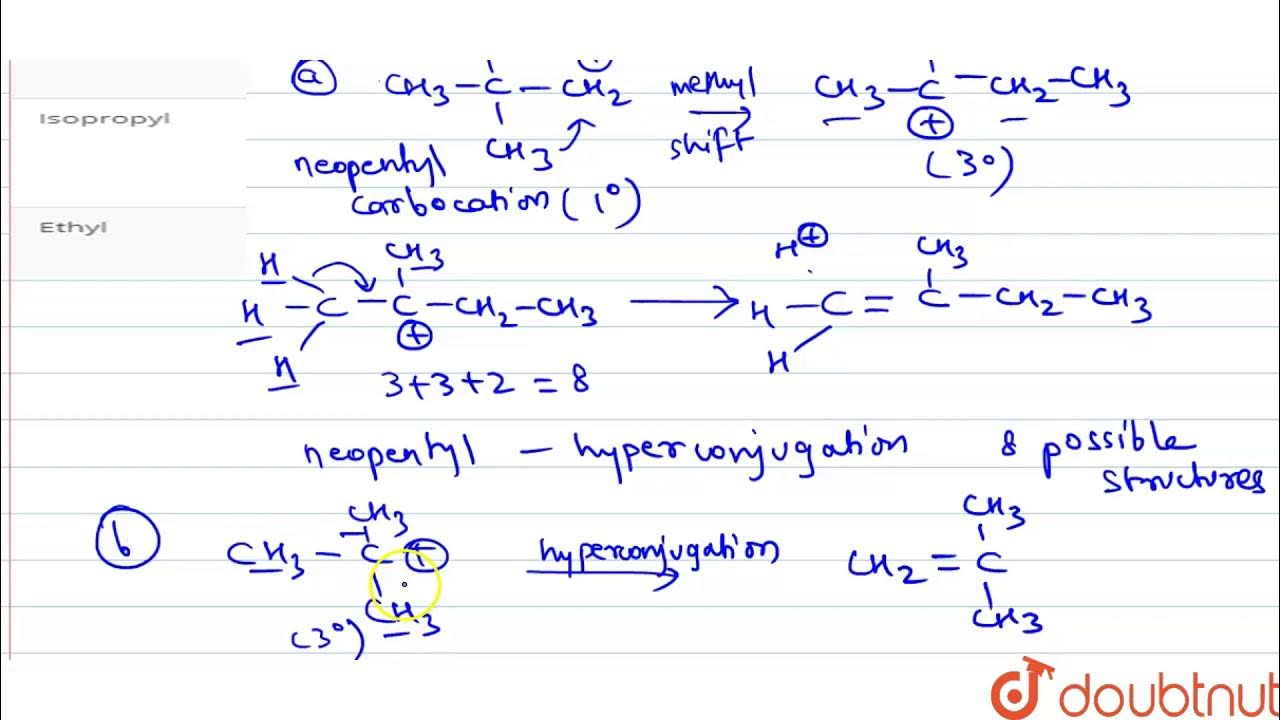 Isopropyl
Ethyl
(a) CH3 — C — CH2 methyl shift → CH3 — C — CH2 — CH3
CH3 ⊕
neopentyl (3°)
carbocation (1°)
H CH3 H⊕ CH3
H — C — C — CH2 — CH3 → H — C = C — CH2 — CH3
H ⊕ H
3+3+2 = 8
neopentyl — hyperconjugation 8 possible
structures
(b) CH3 CH3
CH3 — C ⊕ hyperconjugation → CH2 = C
CH3 CH3
(3°)
doubtnut